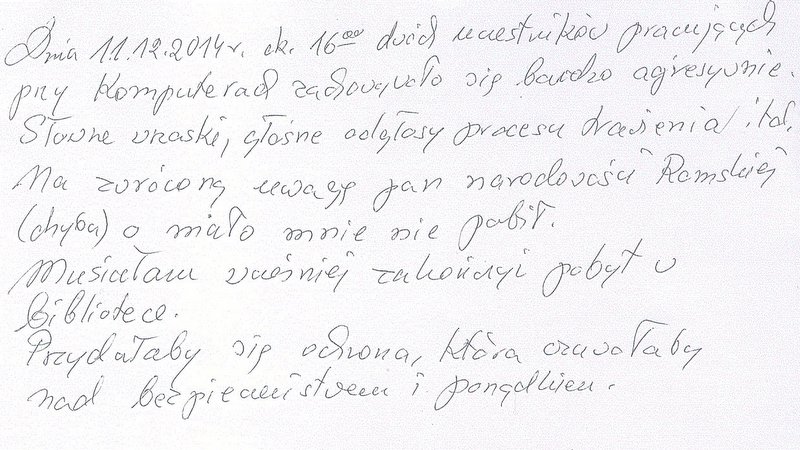 Dnia 11.12.2014r. ok. 16⁰⁰ dwóch uczestników pracujących
przy komputerach zachowywało się bardzo agresywnie.
Słowne wrzaski, głośne odgłosy procesu trawienia itd.
Na zwróconą uwagę pan narodowości Romskiej
(chyba) o mało mnie nie pobił.
Musiałam wcześniej zakończyć pobyt w
bibliotece.
Przydałaby się ochrona, która czuwałaby
nad bezpieczeństwem i porządkiem.